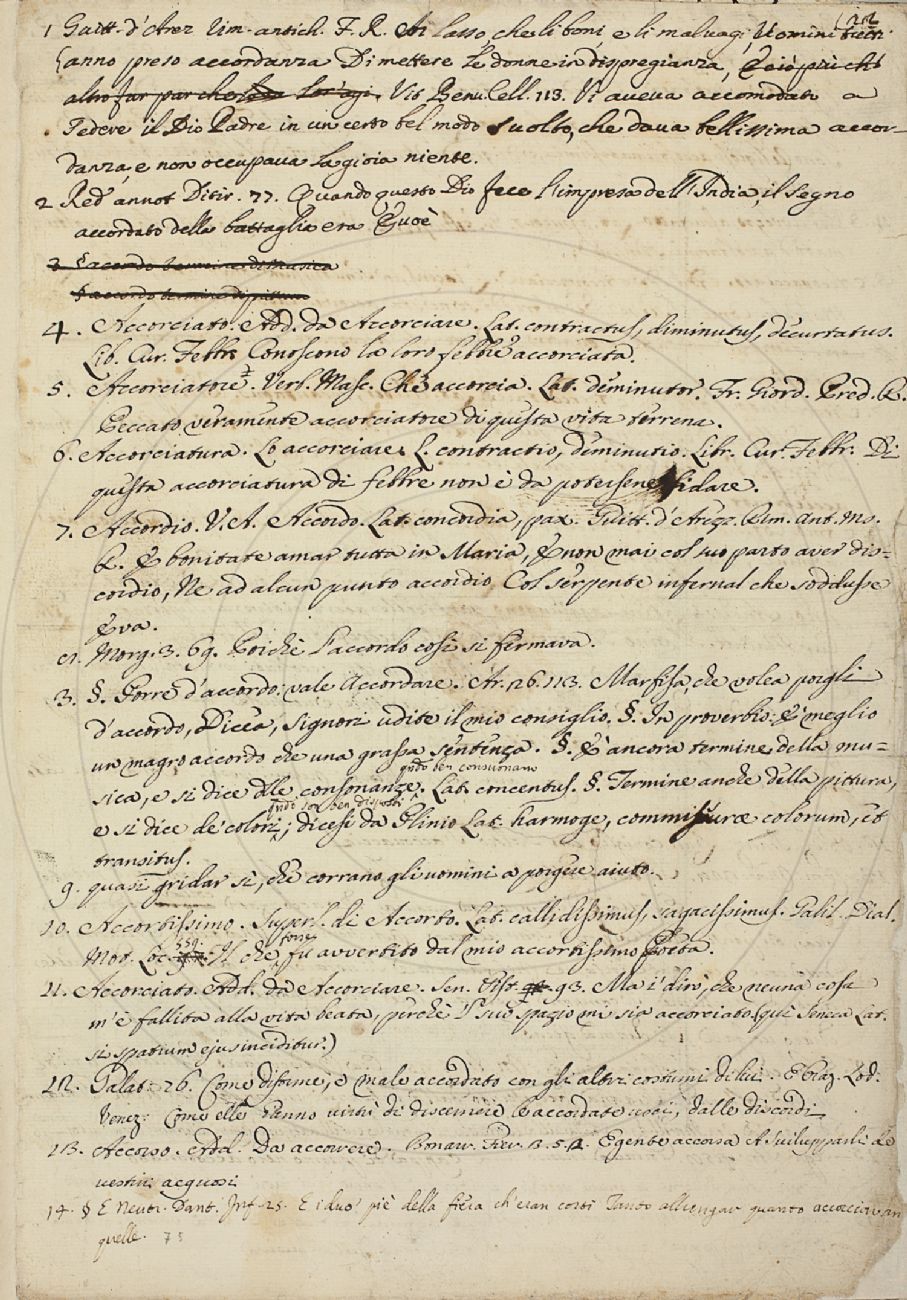 212
1 Guitt. d'Arez Rim. antich. F. R. Ai lasso, che li boni e li malvagi Uomini tutti
anno preso accordanza Di mettere le donne in dispregianza, E ciò più chè
altro fur par che
Vit. Benv. Cell. 113. Vi aveva accomodato a
sedere il Dio Padre in un certo bel modo svolto, che dava bellissima accor-
danza, e non occupava la gioia niente.
2 Red. annot. Ditir. 77. Quando questo Dio fece l'impresa dell'India, il segno
accordato della battaglia era Evoè
3 §. accordo termine di Musica
§ accordo termine di pittura
4. Accorciato. Add. da Accorciare. Lat. contractus, diminutus, decurtatus.
Lib. Cur. Febbr. Conoscono la loro febbre accorciata.
5. Accorciatore. Verb. Masc. Che accorcia. Lat. deminutor. Fr. Giord. Pred. R.
Peccato veramente accorciatore di questa vita terrena.
6. Accorciatura. Lo accorciare. L. contractio, deminutio. Libr. Cur. Febbr. Di
questa accorciatura di febbre non è da potersene fidare.
7. Accordio. V. A. Accordo. Lat. concordia, pax. Guitt. d'Arezz. Rim. ant. Ms.
R. E bonitate amar tutta in Maria, E non mai col suo parto aver dis=
cordio, Ne ad alcun punto accordio Col serpente infernal che soddusse
Eva.
Morg. 3. 69. Poichè l'accordo così si fermava.
3. §. Porre d'accordo: vale Accordare. Ar. 26. 113. Marfisa, che volea porgli
d'accordo, Dicea, signori udite il mio consiglio. §. In proverbio: È meglio
un magro accordo che una grassa sentenza. §. È ancora termine della mu=
qndo ben consuonano
sica, e si dice dlle consonanze. Lat. concentus. §. Termine anche della pittura,
qndo son ben disposti
e si dice de' colori; dicesi da Plinio Lat. harmoge, commissurae colorum, et
transitus.
9. quasi gridar sì, che corrano gli uomini a porgere aiuto.
10. Accortissimo. Superl. di Accorto. Lat. callidissimus, sagacissimus. Galil. Dial.
559. forse
Mot. Loc. Il che fu avvertito dal mio accortissimo Poeta.
11. Accorciato. Add. da Accorciare. Sen. Pist. 93. Ma i' dirò, che neuna cosa
m'è fallita alla vita beata, perchè 'l suo spazio mi sia accorciato (quì Seneca Lat.
si spatium ejus inciditur.)
12. Galat. 26. Come disforme, e male accordato con gli altri costumi di lui. Ebraz. Lod.
Venez. Come elle hanno virtù di discernere le accordate voci, dalle discordi
13. Accorso. Add. Da accorrere. Bonar. Fier. 3. 5. 2. E gente accorsa A svilupparsi de
vestiri acquosi
14. § E Neutr. Dant. Inf. 25. E i duo' piè della fiera ch'eran corti Tanto allungar quanto accorciavan
quelle. 75